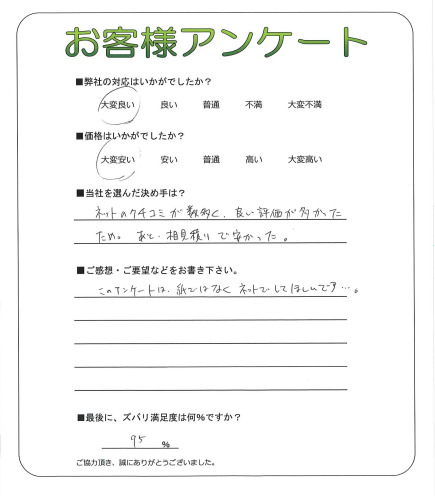 お客様アンケート
■弊社の対応はいかがでしたか？
大変良い 良い 普通 不満 大変不満
■価格はいかがでしたか？
大変安い 安い 普通 高い 大変高い
■当社を選んだ決め手は？
ネットのクチコミが数多く、良い評価が多かった
ため。あと、相見積りで安かった。
■ご感想・ご要望などをお書き下さい。
このアンケートは、紙ではなくネットでしてほしいです…。
■最後に、ズバリ満足度は何％ですか？
95 ％
ご協力頂き、誠にありがとうございました。